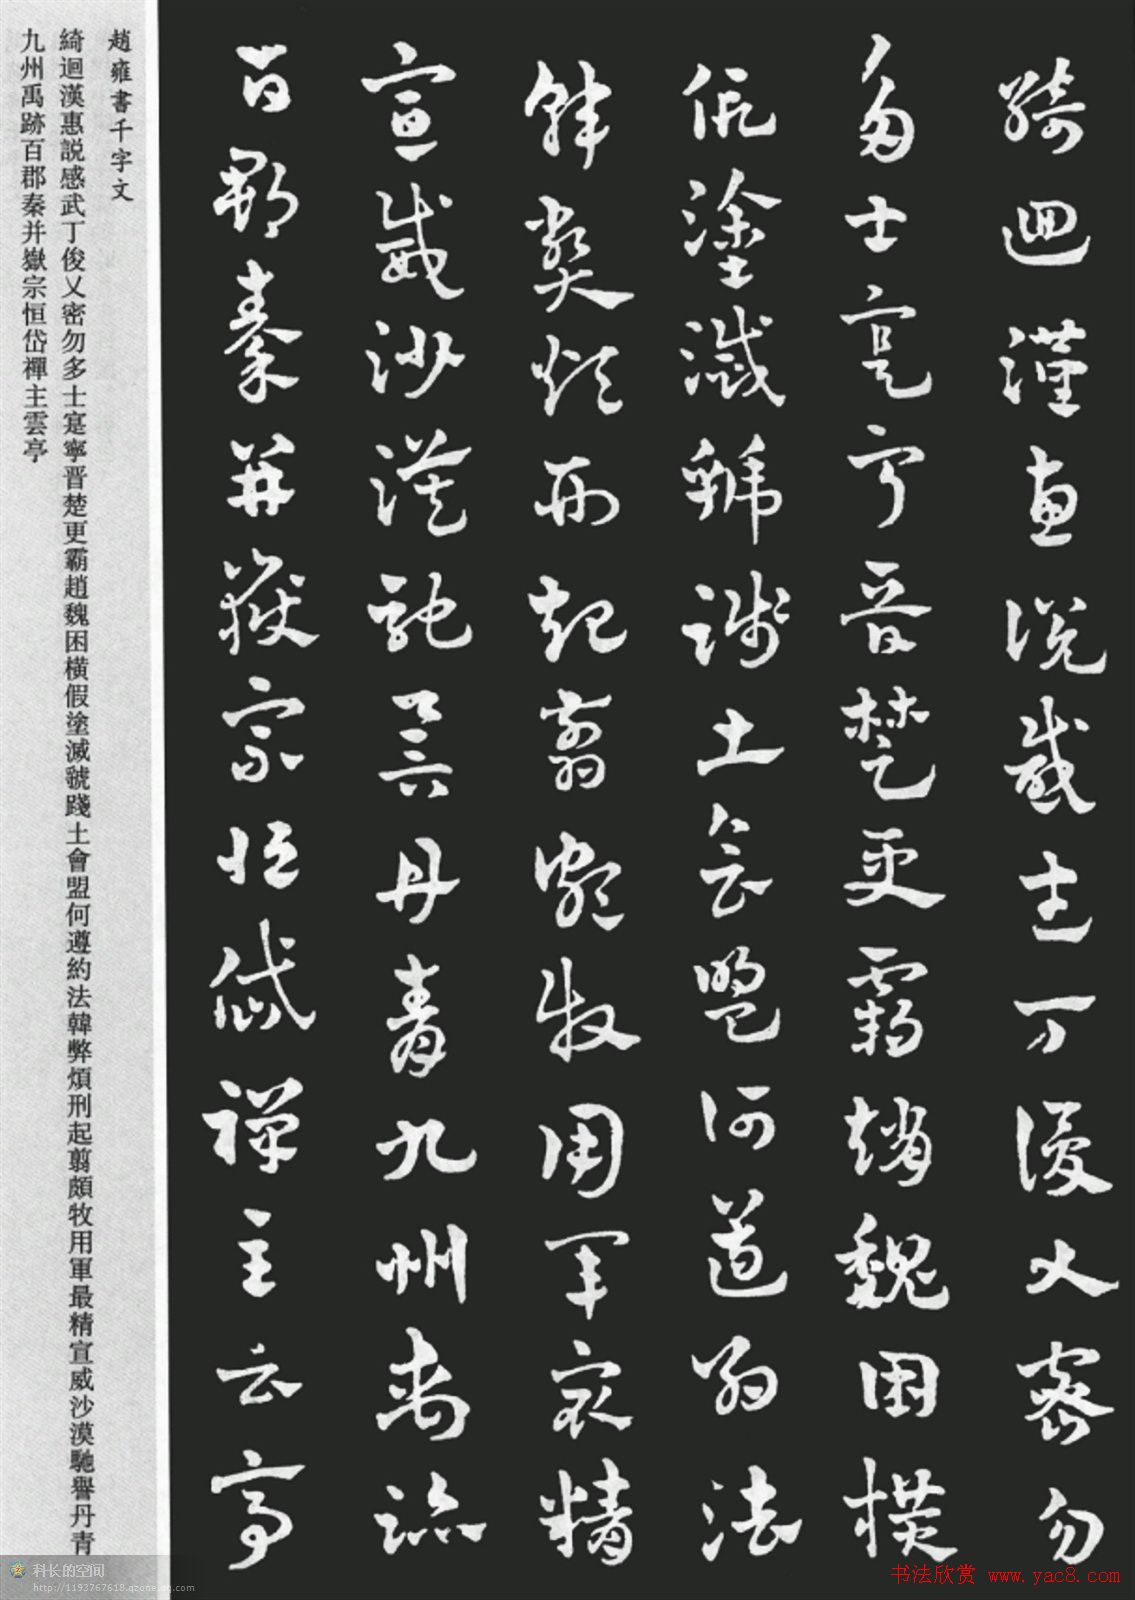 綺迴漢惠説感武丁俊乂密勿
多士寔寧晉楚更霸趙魏困橫
假塗滅虢踐土會盟何遵約法
韓弊煩刑起翦頗牧用軍最精
宣威沙漠馳譽丹青九州禹跡
百郡秦并嶽宗恒岱禪主云亭
趙雍書千字文
綺迴漢惠説感武丁俊乂密勿多士寔寧晋楚更霸趙魏困橫假塗滅虢踐土會盟何遵約法韓弊煩刑起翦頗牧用軍最精宣威沙漠馳譽丹青
九州禹跡百郡秦并嶽宗恒岱禪主雲亭
科长的空间
http://1193767618.qzone.qq.com
书法欣赏 www.yac8.com